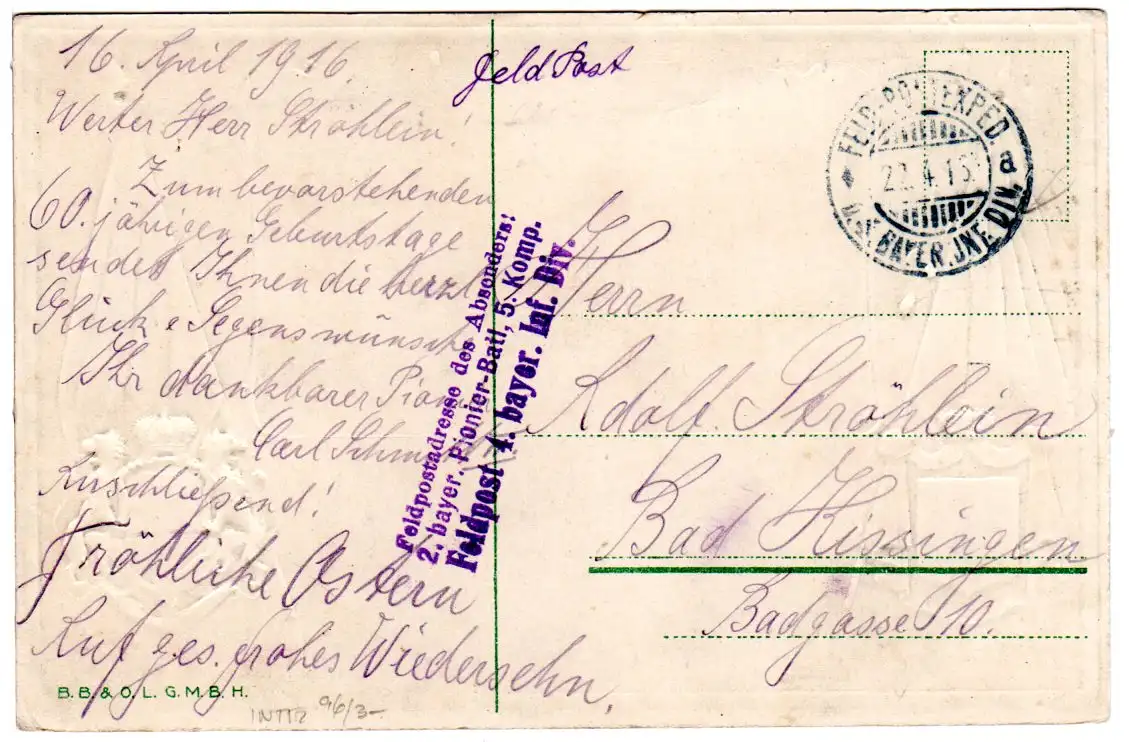 16. April 1916.
Werter Herr Ströhlein!
Zum bevorstehenden
60. jährigen Geburtstage
sendet Ihnen die herzl.
Glück & Segenswünsche
Ihr dankbarer Pionier
Carl
Anschließend!
Fröhliche Ostern
Auf ges. frohes Wiedersehn.
B. B. & O. L. G. M. B. H.
INTTR 96/3-
Feld Post
Feldpostadresse des Absenders:
2. bayer. Pionier-Batl, 5. Komp.
Feldpost 4. bayer. Inf. Div.
FELD-POSTEXPED.
a
BAYER. JNF. DIV.
Herrn
Adolf Ströhlein
Bad Kissingen
Badgasse 10.